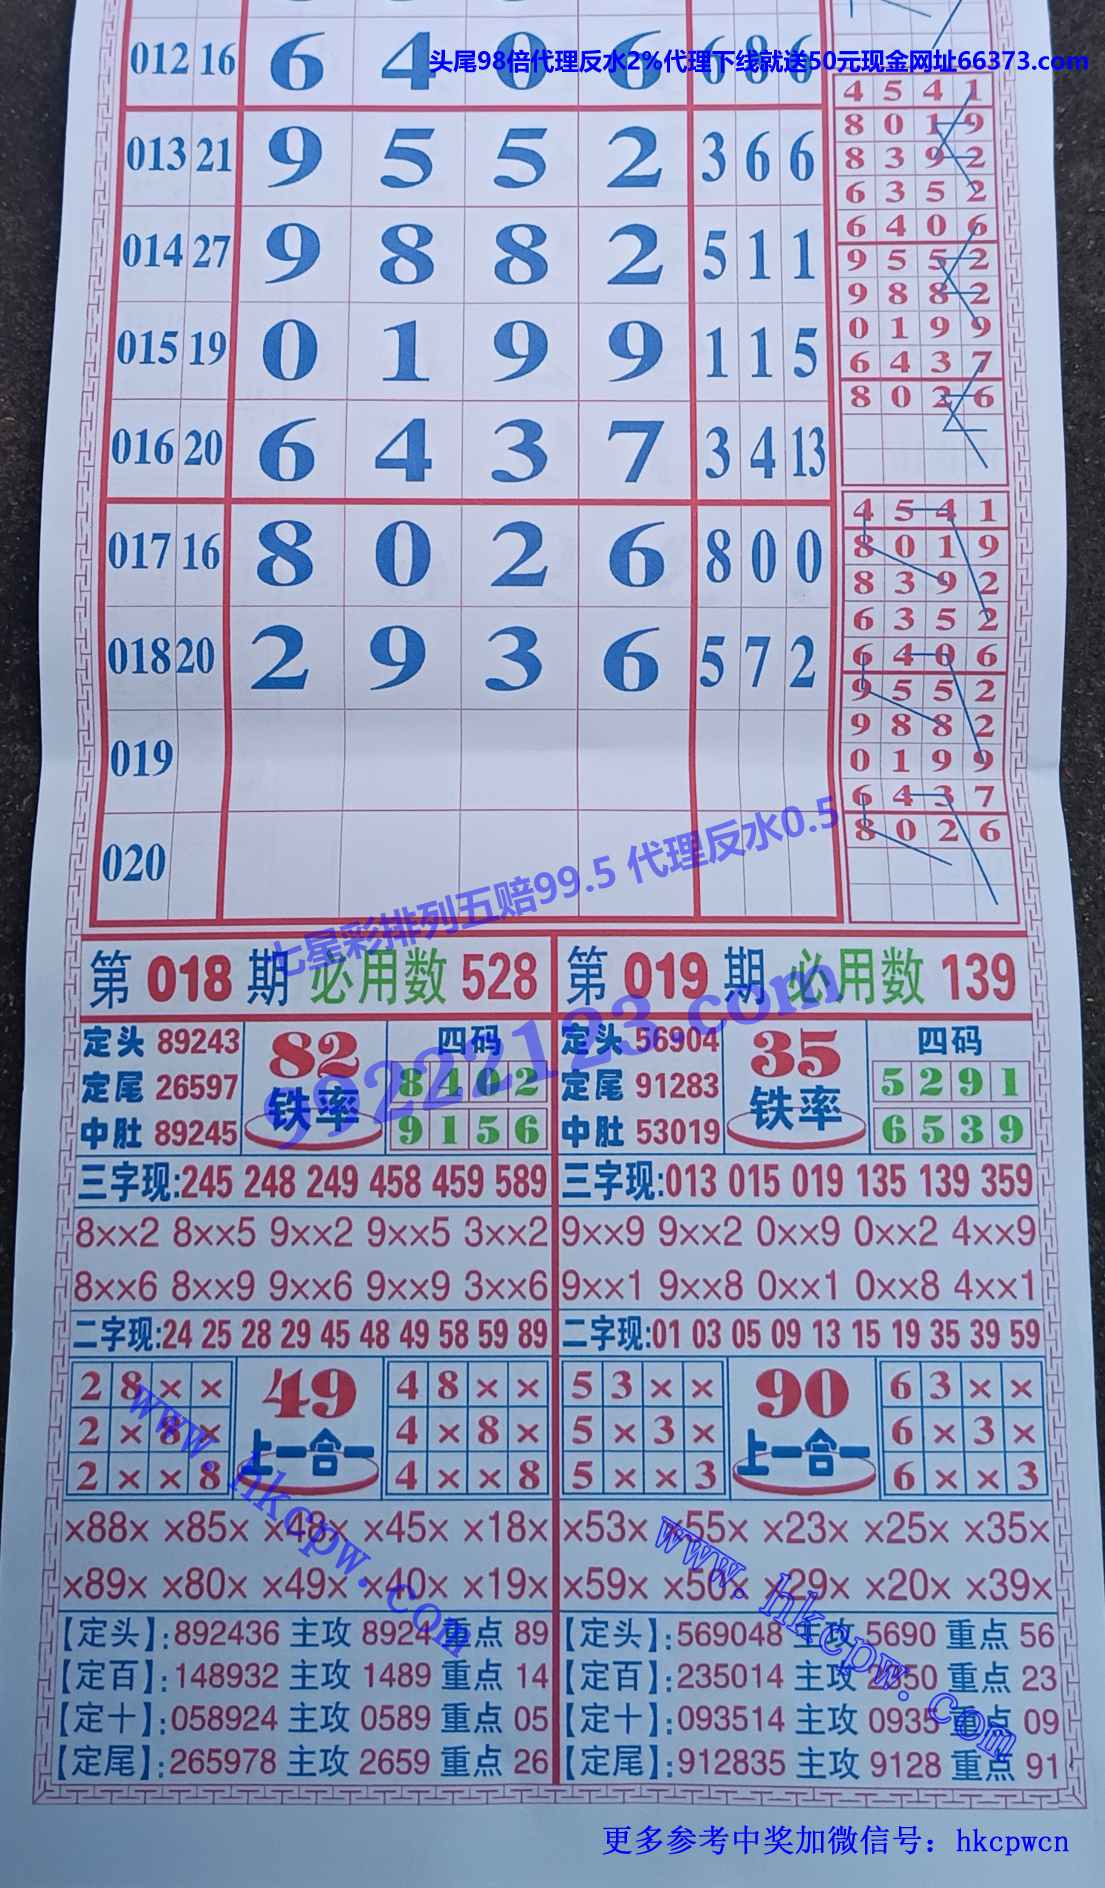 头尾98倍代理反水2%代理下线就送50元现金网址66373.com
012 16 6 4 0 6 6 8 6
013 21 9 5 5 2 3 6 6
014 27 9 8 8 2 5 1 1
015 19 0 1 9 9 1 1 5
016 20 6 4 3 7 3 4 13
017 16 8 0 2 6 8 0 0
018 20 2 9 3 6 5 7 2
019
020
4 5 4 1
8 0 1 9
8 3 9 2
6 3 5 2
6 4 0 6
9 5 5 2
9 8 8 2
0 1 9 9
6 4 3 7
8 0 2 6
4 5 4 1
8 0 1 9
8 3 9 2
6 3 5 2
6 4 0 6
9 5 5 2
9 8 8 2
0 1 9 9
6 4 3 7
8 0 2 6
七星彩排列五赔99.5 代理反水0.5
第 018 期 必用数 528
定头 89243
定尾 26597
中肚 89245
82
铁率
四码
8 4 0 2
9 1 5 6
三字现:245 248 249 458 459 589
8××2 8××5 9××2 9××5 3××2
8××6 8××9 9××6 9××9 3××6
二字现:24 25 28 29 45 48 49 58 59 89
2 8 × ×
2 × 8 ×
2 × × 8
49
上一合一
4 8 × ×
4 × 8 ×
4 × × 8
×88× ×85× ×48× ×45× ×18×
×89× ×80× ×49× ×40× ×19×
【定头】:892436 主攻 8924 重点 89
【定百】:148932 主攻 1489 重点 14
【定十】:058924 主攻 0589 重点 05
【定尾】:265978 主攻 2659 重点 26
第 019 期 必用数 139
定头 56904
定尾 91283
中肚 53019
35
铁率
四码
5 2 9 1
6 5 3 9
三字现:013 015 019 135 139 359
9××9 9××2 0××9 0××2 4××9
9××1 9××8 0××1 0××8 4××1
二字现:01 03 05 09 13 15 19 35 39 59
5 3 × ×
5 × 3 ×
5 × × 3
90
上一合一
6 3 × ×
6 × 3 ×
6 × × 3
×53× ×55× ×23× ×25× ×35×
×59× ×50× ×29× ×20× ×39×
【定头】:569048 主攻 5690 重点 56
【定百】:235014 主攻 2350 重点 23
【定十】:093514 主攻 0935 重点 09
【定尾】:912835 主攻 9128 重点 91
www.hkcpw.com
www.hkcpw.com
更多参考中奖加微信号：hkcpwcn